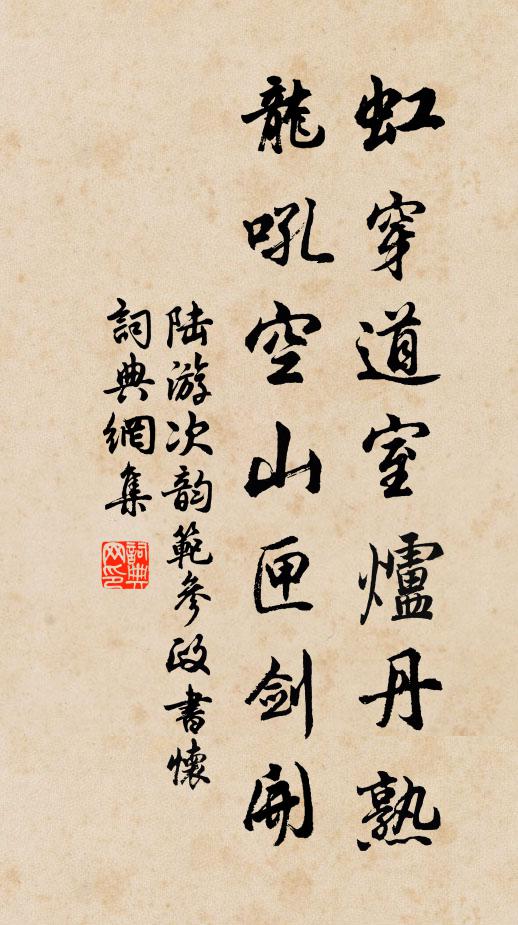 虹穿道室爐丹熟
龍吼空山匣剑開
陆游次韵範參政書懷
詞典網集
詞典網印